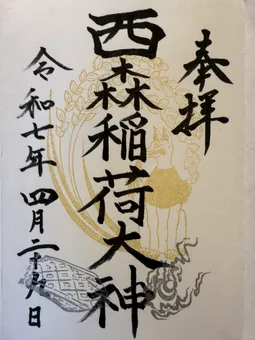 奉拝
西森稲荷大神
令和七年四月二十六日